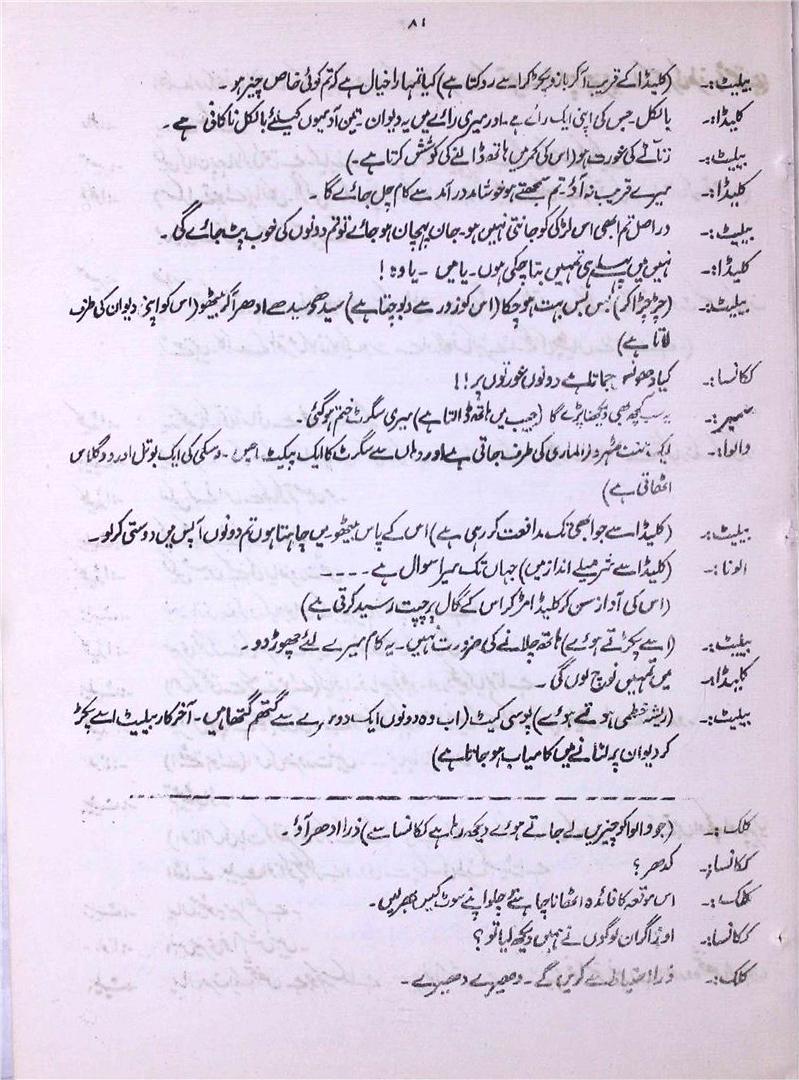 ۸۱
بیلیٹ:۔ (کلیڈا کے قریب آکر بازو پکڑ کر اسے روکتا ہے) کیا تمہارا خیال ہے کہ تم کوئی خاص چیز ہو۔
کلیڈا:۔ بالکل۔ جس کی اپنی ایک رائے ہے۔ اور میری رائے میں یہ دیوان۔ تین آدمیوں کیلئے بالکل ناکافی ہے۔
بیلیٹ:۔ زناٹے کی عورت ہو (اس کی کمر میں ہاتھ ڈالنے کی کوشش کرتا ہے۔)
کلیڈا:۔ میرے قریب نہ آؤ۔ تم سمجھتے ہو خوشامد درآمد سے کام چل جائے گا۔
بیلیٹ:۔ دراصل تم ابھی اس لڑکی کو جانتی نہیں ہو۔ جان پہچان ہو جائے تو تم دونوں کی خوب پٹ جائے گی۔
کلیڈا:۔ نہیں میں پہلے ہی تمہیں بتا چکی ہوں۔ یا میں۔ یا وہ!
بیلیٹ:۔ (چڑچڑا کر) بس بس بہت ہو چکا (اس کو زور سے دبوچتا ہے) سیدھے سیدھے ادھر آکر بیٹھو (اس کو اپنے دیوان کی طرف
لاتا ہے)
ککانسا:۔ کیا دھونس جماتا ہے دونوں عورتوں پر!!
یہ سب کچھ بھی دیکھنا پڑے گا (جیب میں ہاتھ ڈالتا ہے) میری سگرٹ ختم ہو گئی۔
والوا:۔ ایک الماری کی طرف جاتی ہے اور وہاں سے سگرٹ کا ایک پیکٹ ماچس۔ وسکی کی ایک بوتل اور دو گلاس
اٹھاتی ہے)
بیلیٹ:۔ (کلیڈا سے جو ابھی تک مدافعت کر رہی ہے) اس کے پاس بیٹھو میں چاہتا ہوں تم دونوں آپس میں دوستی کر لو۔
الونا:۔ (کلیڈا سے شرمیلے انداز میں) جہاں تک میرا سوال ہے۔ ۔ ۔ ۔ ۔
(اس کی آواز سن کر کلیڈا مڑ کر اس کے گال پر چپت رسید کرتی ہے)
بیلیٹ:۔ (اسے پکڑتے ہوئے) ہاتھ چلانے کی ضرورت نہیں۔ یہ کام میرے لئے چھوڑ دو۔
کلیڈا:۔ میں تمہیں نوچ لوں گی۔
بیلیٹ:۔ (ریشہ خطمی ہوتے ہوئے) پوسی کیٹ (اب وہ دونوں ایک دوسرے سے گتھم گتھا ہیں۔ آخرکار بیلیٹ اسے پکڑ
کر دیوان پر لٹانے میں کامیاب ہو جاتا ہے)
کلک:۔ (جو والوا کو چیزیں لے جاتے ہوئے دیکھ رہا ہے ککانسا سے) ذرا ادھر آؤ۔
ککانسا:۔ کدھر؟
کلک:۔ اس موقعہ کا فائدہ اٹھانا چاہئے چلو اپنے سوٹ کیس بھر لیں۔
ککانسا:۔ اور اگر ان لوگوں نے ہمیں دیکھ لیا تو؟
کلک:۔ ذرا احتیاط سے کریں گے۔ دھیرے دھیرے۔